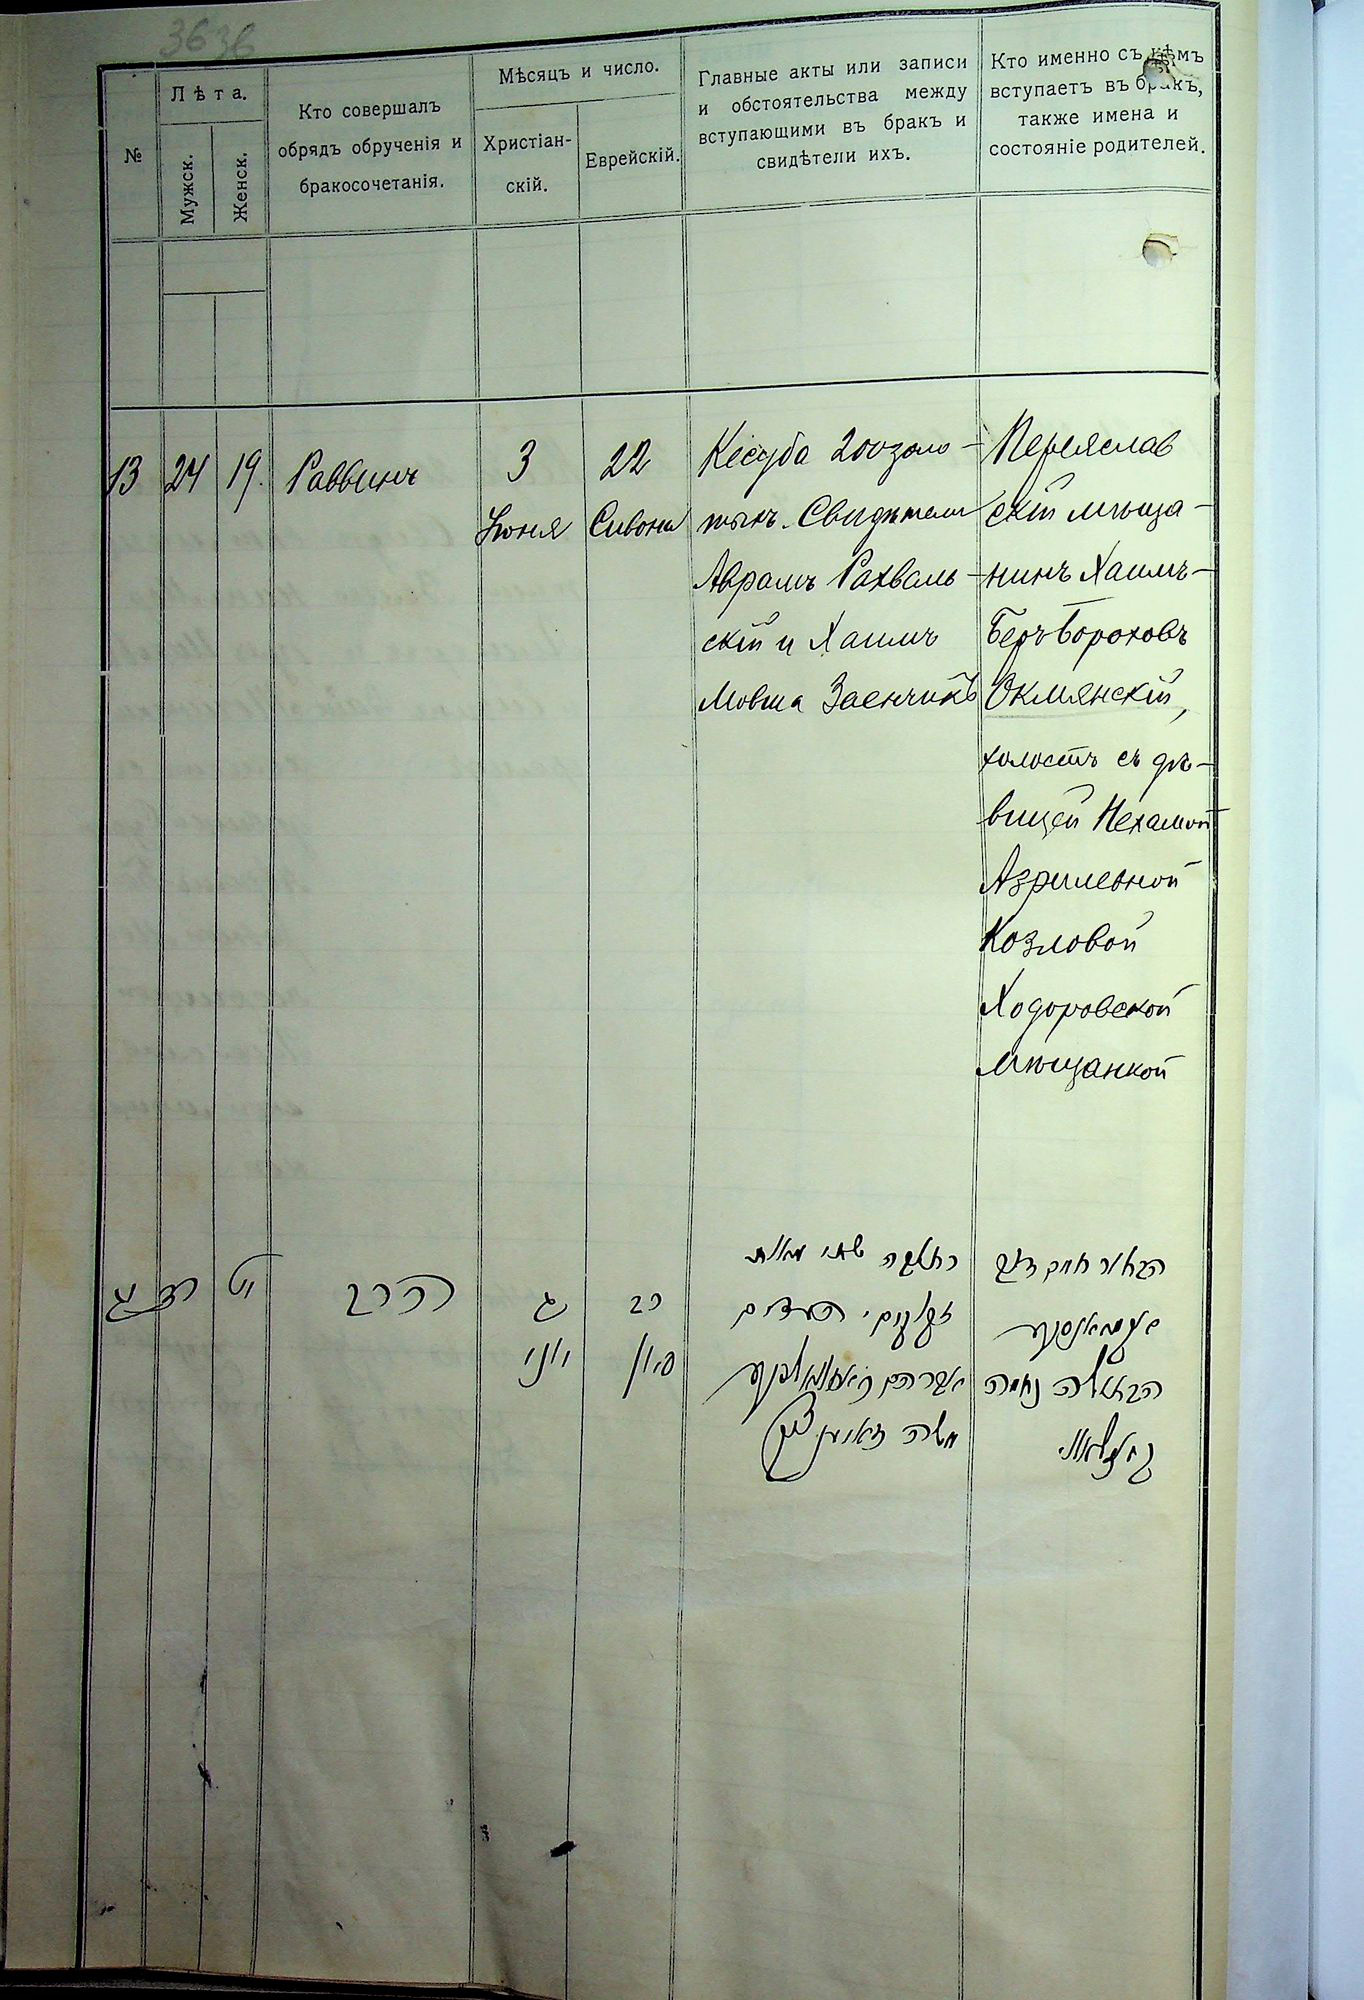 36 36
№
Лѣта.
Мужск.
Женск.
Кто совершалъ
обрядъ обрученія и
бракосочетанія.
Мѣсяцъ и число.
Христіан-
скій.
Еврейскій.
Главные акты или записи
и обстоятельства между
вступающими въ бракъ и
свидѣтели ихъ.
Кто именно съ кѣмъ
вступаетъ въ бракъ,
также имена и
состояніе родителей.
13
24
19.
Раввинъ
3
Іюня
22
Сивона
Кесуба 200 золо-
тыхъ. Свидѣтели
Аврамъ Рахваль-
скій и Хаимъ
Мовша Заенчикъ
Переяслав
скій мѣща-
нинъ Хаимъ-
Беръ Бороховъ
Окмянскій,
холостъ съ дѣ-
вицей Нехамой
Азрилевной
Козловой
Ходоровской
мѣщанкой
יג
כד
יט
הרב
ג
יוני
כב
סיון
כתובה שתי מאות
זהובים העדים
אברהם
משה זאיענציק
הבחור חיים דוב
הבתולה נחמה